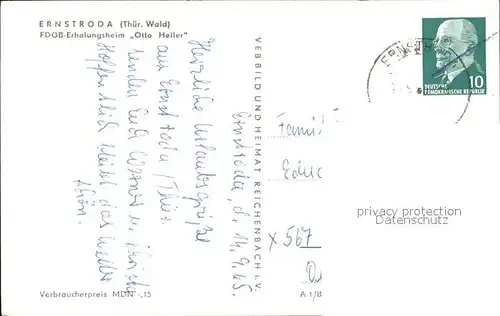 ERNSTRODA (Thür. Wald)
FDGB-Erholungsheim „Otto Heller"
Ernstroda, d. 14.9.65
Herzliche Urlaubsgrüße
aus Ernstroda/Thür.
senden Euch Werner u. Ulrich
Hoffentlich bleibt das Wetter
schön.
VEB BILD UND HEIMAT REICHENBACH i. V.
A 1/B
Verbraucherpreis MDN -,15
ERNST
10
DEUTSCHE
DEMOKRATISCHE REPUBLIK
Famil
X 567
privacy protection
Datenschutz